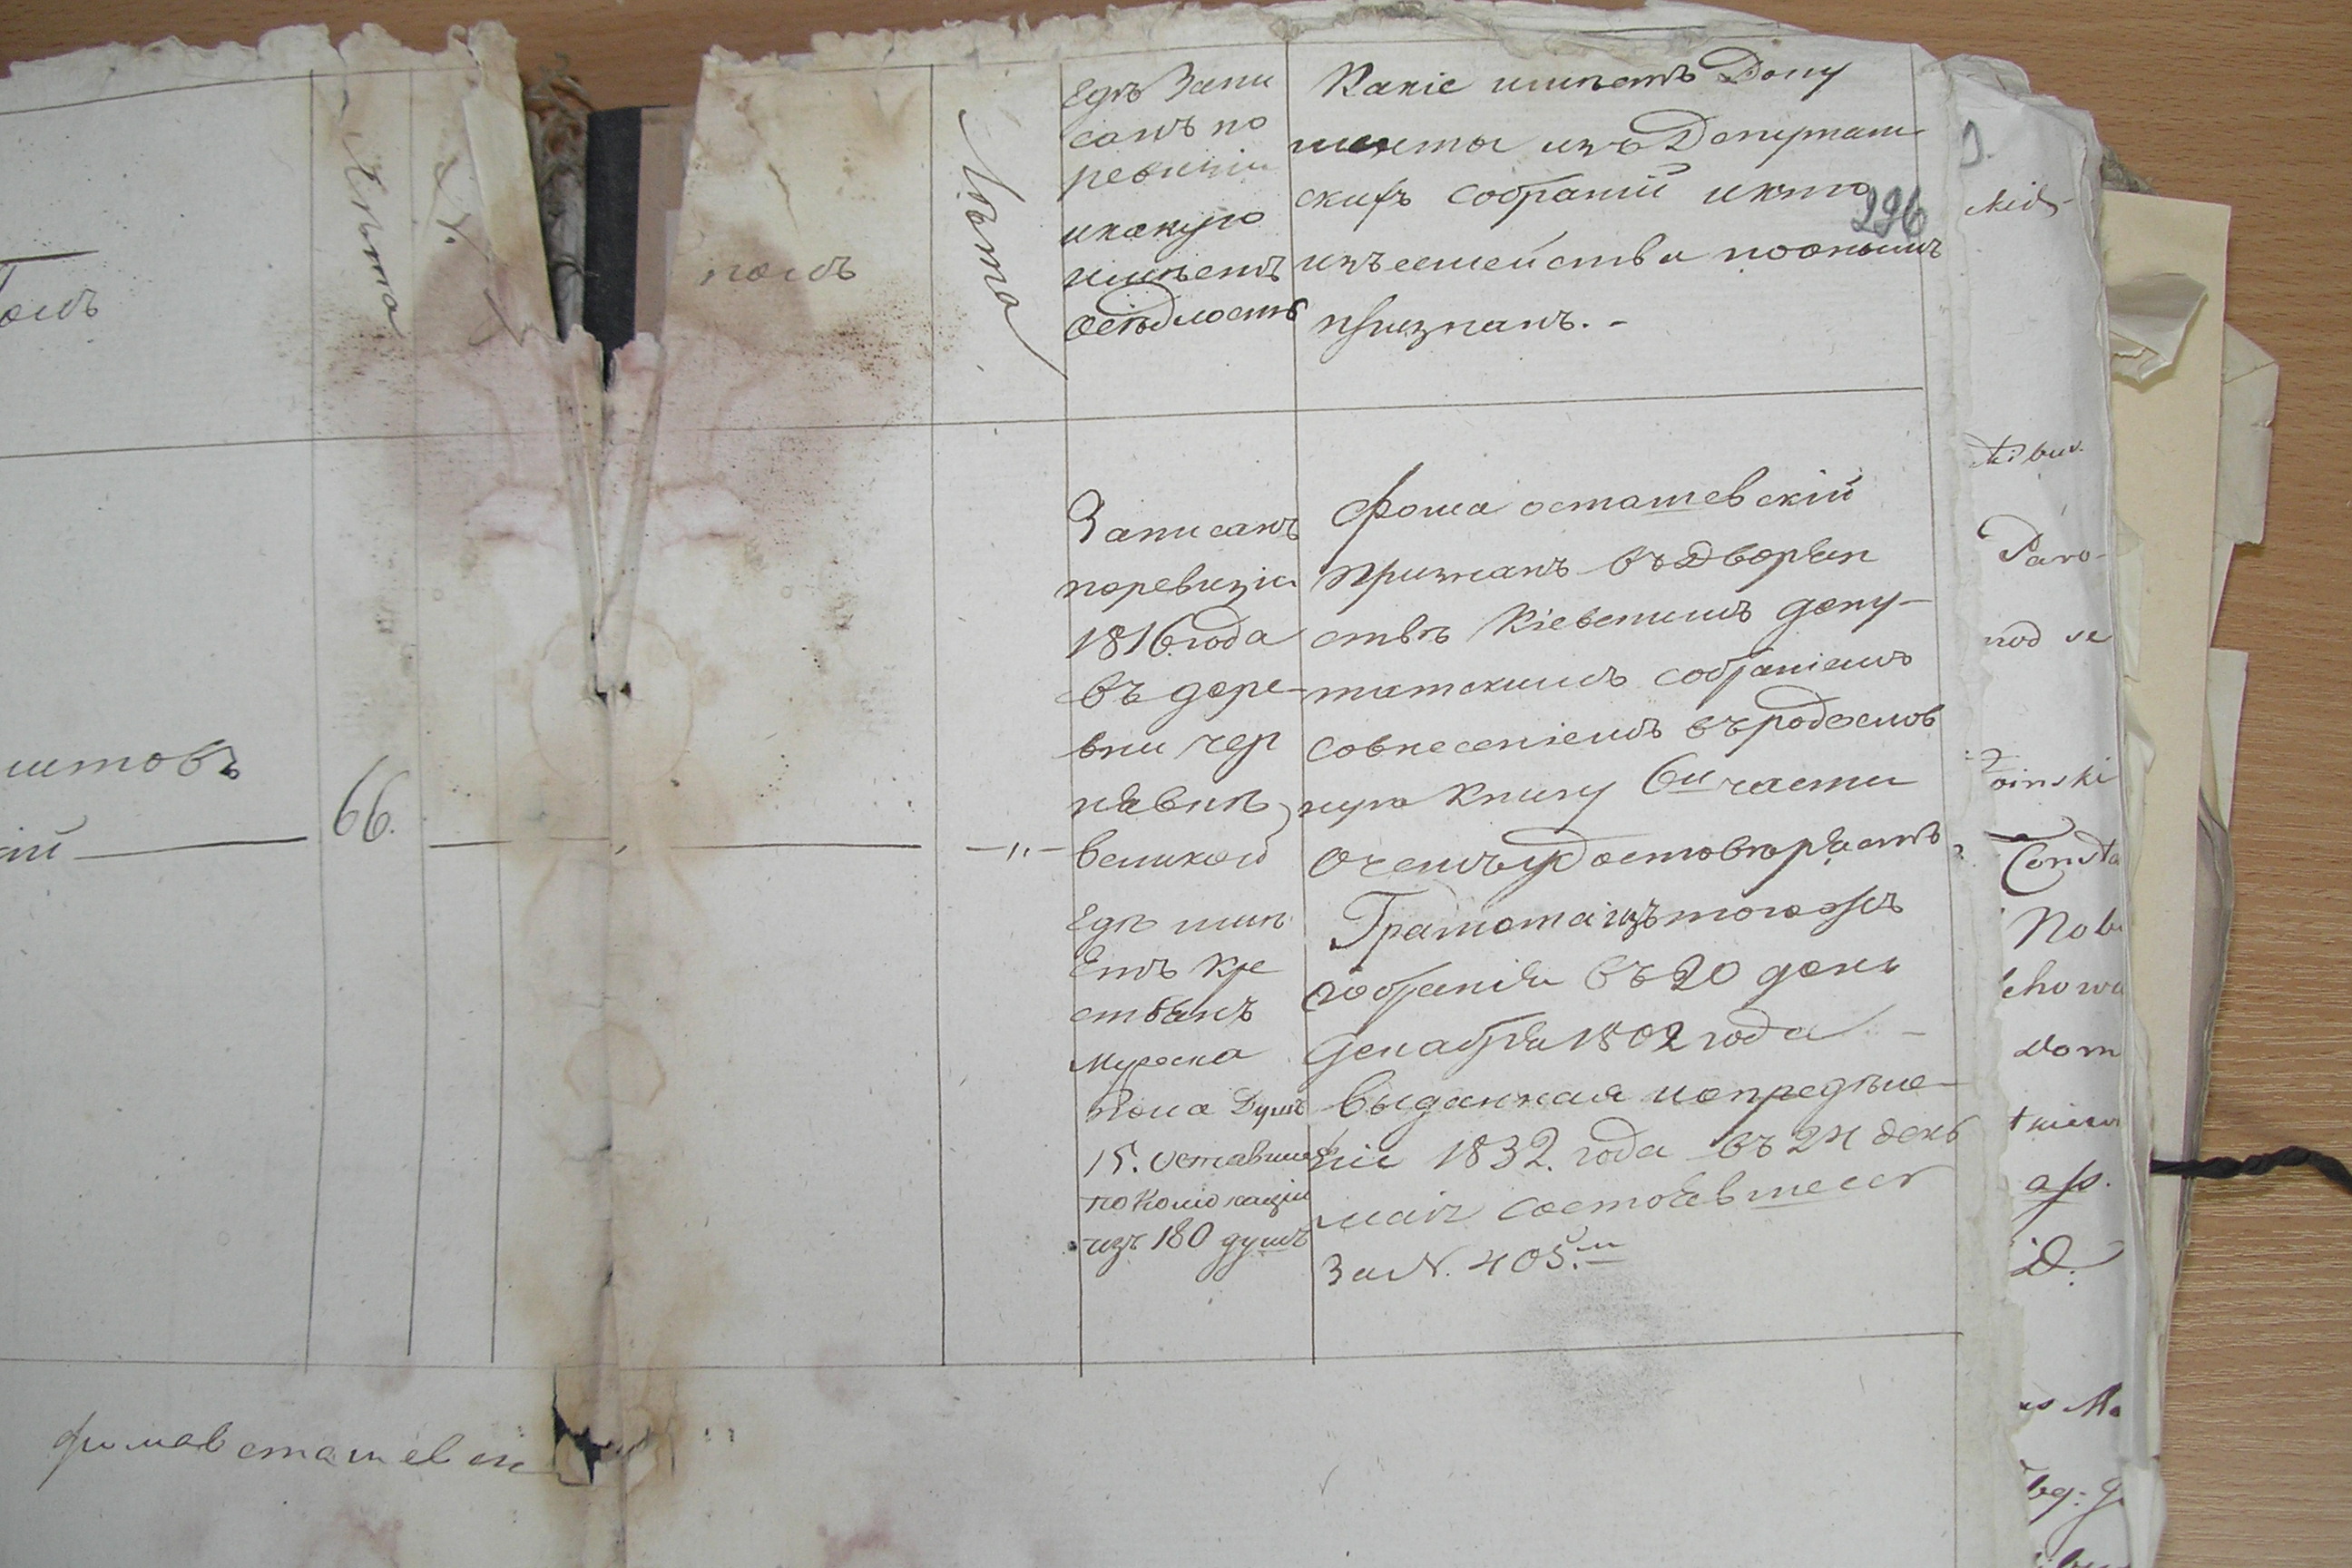 полъ
Лѣта
полъ
Лѣта
Гдѣ Запи
санъ по
ревизіи
икакую
имѣетъ
осѣдлость
Какіе имѣетъ Доку
менты изъ Депутат
скихъ собраній икто
изъ семейства поонымъ
признанъ. -
296
итовъ
ій
66.
"
Записанъ
поревизіи
1816 года
въ дере-
вни чер
нявкѣ
великой
Гдѣ имѣ
Етъ кре
стьянъ
Мужеска
Пола Душъ
15. оставших
по Комо каціи
изъ 180 душъ
Фома осташевскій
признанъ въ Дворян
ствѣ Кіевскимъ депу-
татскимъ собраніемъ
совнесеніемъ въ родослов
ную Книгу 6й части
очемъ удостовѣряетъ
Грамота изъ того жъ
собранія въ 20 день
Декабря 1802 года -
выданная иопредѣле-
ніе 1832. года въ 24 день
маія состоявшееся
За N. 405.м
Фома осташевск
skid
Paro-
pod
oinski
Consta
Nob
chowa
Dom
D: